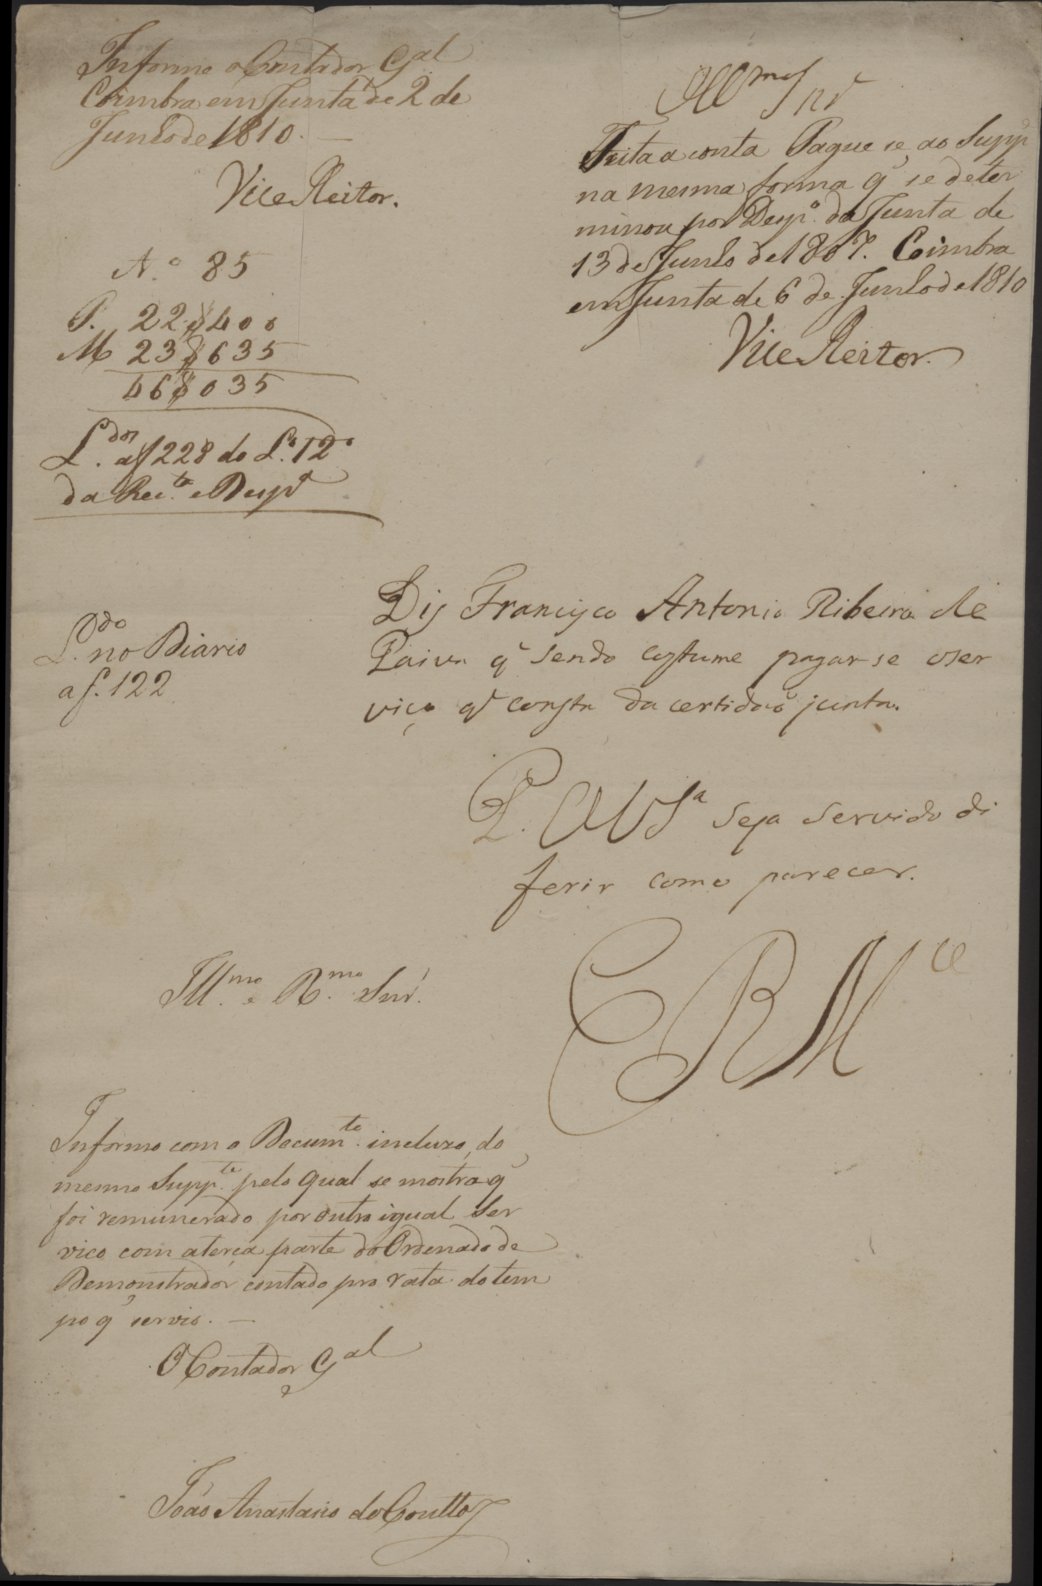 Informe o Contador G.al
Coimbra em Junta de 2 de
Junho de 1810. —
Vice Reitor.
N.º 85
P. 22$400
M 23$635
46$035
L.dos a f 228 do L.º 12º
da Rec.ta e Desp.ª
L.do no Diario
a f. 122
Ill.mo Snr
Feita a conta Pague se ao Supp.e
na mesma forma q̃ se deter
minou por Desp.º da Junta de
13 de Junho de 1807. Coimbra
em Junta de 6 de Junho de 1810
Vice Reitor.
Dis Francisco Antonio Ribeiro de
Paiva q̃ sendo costume pagar-se o ser
viço q̃ consta da certidaõ junta.
P. a V S.a seja servido di
ferir como parecer.
E R M.ce
Ill.mo e R.mo Snr.
Informo com o Docum.to incluzo, do
mesmo Supp.te pelo qual se mostra q̃
foi remunerado por outro igual Ser
viço com a terça parte do Ordenado de
Demonstrador contado pro rata do tem
po q̃ servio. —
O Contador G.al
João Anastasio do Coutto